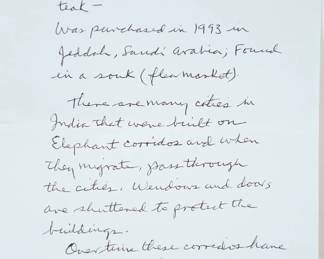 teak –
Was purchased in 1993 in
Jeddah, Saudi Arabia; Found
in a souk (flea market)
There are many cities in
India that were built on
Elephant corridos and when
they migrate, pass through
the cities. Wendows and doors
are shuttered to protect the
buildings.
Over time these corridos have